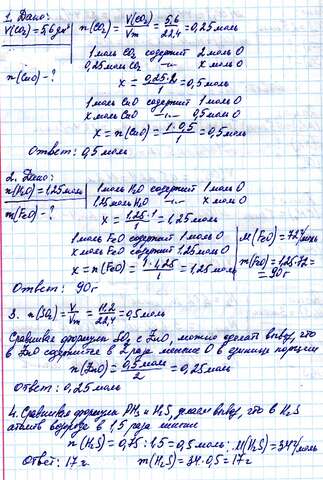 1. Дано:
V(CO₂)=5,6 дм³
n(CuO)-?
n(CO₂)=V(CO₂)/Vm=5,6/22,4=0,25 моль
1 моль CO₂ содержит 2 моль O
0,25 моль CO₂ —„— x моль O
x = 0,25·2/1 = 0,5 моль
1 моль CuO содержит 1 моль O
x моль CuO —„— 0,5 моль O
x = n(CuO) = 1·0,5/1 = 0,5 моль
Ответ: 0,5 моль
2. Дано:
n(H₂O)=1,25 моль
m(FeO)-?
1 моль H₂O содержит 1 моль O
1,25 моль H₂O —„— x моль O
x = 1,25·1/1 = 1,25 моль
1 моль FeO содержит 1 моль O
x моль FeO содержит 1,25 моль O
x = n(FeO) = 1·1,25/1 = 1,25 моль
M(FeO)=72 г/моль
m(FeO)=1,25·72=
=90 г
Ответ: 90 г
3. n(SO₂)=V/Vm=11,2/22,4=0,5 моль
Сравнивая формулы SO₂ с ZnO, можно сделать вывод, что
в ZnO содержится в 2 раза меньше O в единице порции
n(ZnO) = 0,5 моль/2 = 0,25 моль
Ответ: 0,25 моль
4. Сравнивая формулы PH₃ и H₂S, делаем вывод, что в H₂S
атомов водорода в 1,5 раза меньше
n(H₂S) = 0,75:1,5 = 0,5 моль; M(H₂S)=34 г/моль
Ответ: 17 г.
m(H₂S) = 34·0,5 = 17 г